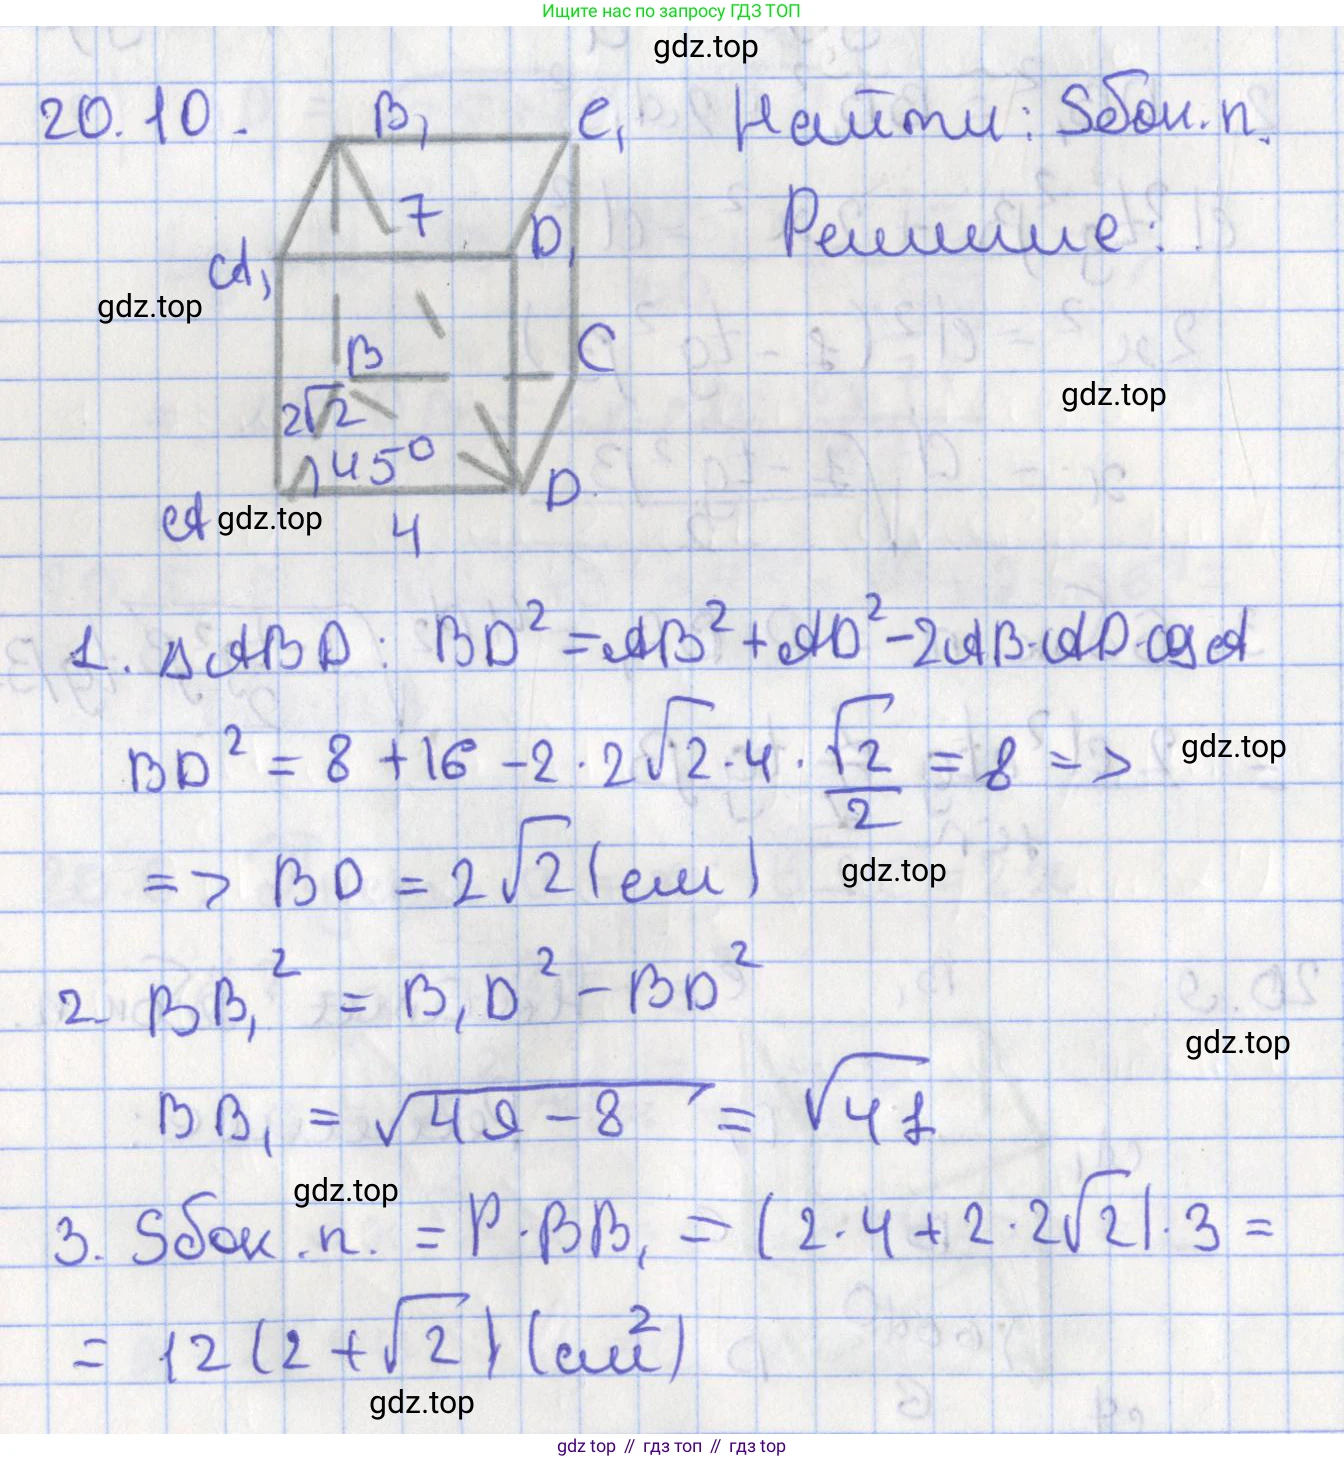 Ищите нас по запросу ГДЗ ТОП
gdz.top
20.10.
B₁
C₁
Найти: Sбок.п.
7
D₁
Решение:
A₁
gdz.top
B
C
2√2
gdz.top
45°
D
A
gdz.top
4
1. ΔABD: BD² = AB² + AD² - 2AB·AD·cos A
BD² = 8 + 16 - 2 · 2√2 · 4 · √2/2 = 8 =>
gdz.top
=> BD = 2√2 (см)
gdz.top
2. BB₁² = B₁D² - BD²
gdz.top
BB₁ = √49 - 8 = √41
gdz.top
3. Sбок.п. = P · BB₁ = (2·4 + 2·2√2) · 3 =
= 12 (2 + √2) (см²)
gdz.top
gdz top // гдз топ // gdz top